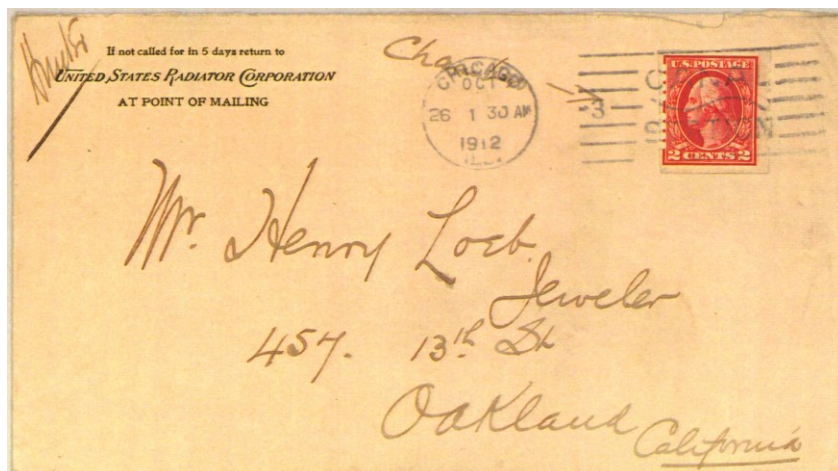 If not called for in 5 days return to
UNITED STATES RADIATOR CORPORATION
AT POINT OF MAILING
CHICAGO
OCT
26 1 30 AM
1912
ILL.
3
CANAL
STATION
U.S. POSTAGE
2 CENTS 2
Mr. Henry Loeb.
Jeweler
457. 13th St
Oakland
California